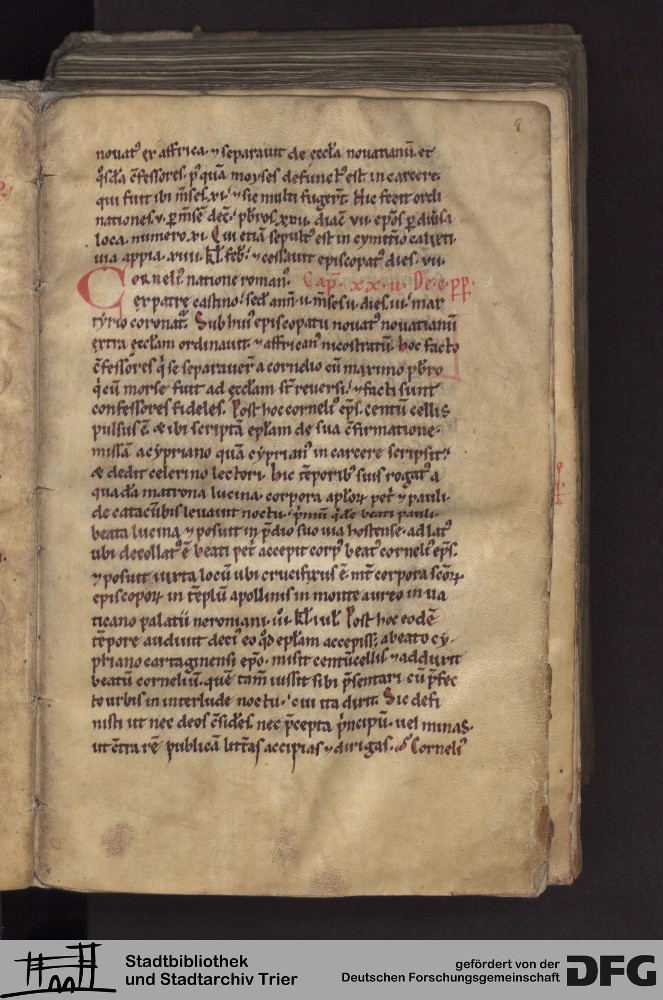 9
novat᷒ ex affrica. ⁊ separavit de eccła novatianū. et
q̇sdā c̄fessores. p᷒ quā moyses defunct᷒ est in carcere.
qui fuit ibi m̄ses. xi. ⁊ sic multi fugert̄. Hic fecit ordi
nationes. v. ꝑ m̄sē dec̄. pb̄ros. xxii. diac̄. vii. ep̄os ꝑ diversa
loca. numero. xi. Qui etiā sepult᷒ est in cymit̄io calixti
via appia. xviii. kł. feb᷒. ⁊ cessavit episcopat᷒ dies. vii.
Corneli᷒. natione roman᷒. Cap̄. xx.ii. De.e.pp̄.
ex patre castino. sed᷒ ann̄. ii. m̄ses. ii. dies. iii. mar
tyrio coronat᷒. Sub hui᷒ episcopatu novat᷒ novatianū
extra eccłam ordinavit. ⁊ affrican᷒ nicostratū. hoc facto
c̄fessores q̇ se separaver̄ a cornelio cū maximo pb̄ro
q̇ cū morse fuit ad eccłam st̄ reversi. ⁊ facti sunt
confessores fideles. Post hoc corneli᷒ ep̄s. centū cellis
pulsus ē. & ibi scriptā epłam de sua c̄firmatione.
missā a cypriano quā cyprian᷒ in carcere scripsit.
& dedit celerino lectori. hic tēporib᷒ suis rogat᷒ a
quadā matrona lucina. corpora apłoꝝ pet᷒ ⁊ pauli.
de catacūbis levavit noctu. p̄mū q̇dē beati pauli.
beata lucina. ⁊ posuit in p̄dio suo via hostense. ad lat᷒
ubi decollat᷒ ē beati pet᷒ accepit corp᷒ beat᷒ corneli᷒ ep̄s.
⁊ posuit iuxta locū ubi crucifixus ē. int̄ corpora sc̄oꝝ
episcopoꝝ in tēplū apollinis in monte aureo in va
ticano palatii neroniani. iii. kł. iuł. Post hoc eodē
tēpore audivit deci᷒ eo q̇d epłam accepiss; a beato cy
priano cartaginensi ep̄o. misit centūcellis ⁊ adduxit
beatū corneliū. quē tam̄ iussit sibi p̄sentari cū p̄fec
to urbis in interlude noctu. cui ita dixit. Sic defi
nisti ut nec deos c̄sideres. nec p̄cepta p̄ncipū. vel minas.
ut c̄tra rē publicā litt̄as accipias ⁊ dirigas. Corneli᷒
Stadtbibliothek
und Stadtarchiv Trier
gefördert von der
Deutschen Forschungsgemeinschaft
DFG